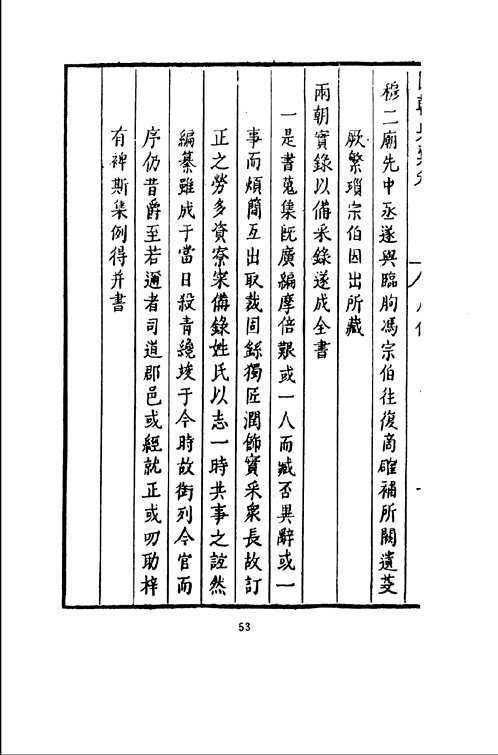 穆二廟先中丞遂與臨朐馮宗伯往復商確補所闕遺芟
厥繁瑣宗伯因出所藏
兩朝實錄以備采錄遂成全書
一是書蒐集既廣編摩倍艱或一人而臧否異辭或一
事而煩簡互出取裁固繇獨匠潤飾寔采衆長故訂
正之勞多資寮寀備錄姓氏以志一時共事之誼然
編纂雖成于當日殺青纔竣于今時故銜列今官而
序仍昔爵至若邇者司道郡邑或經就正或叨助梓
有裨斯集例得并書
53